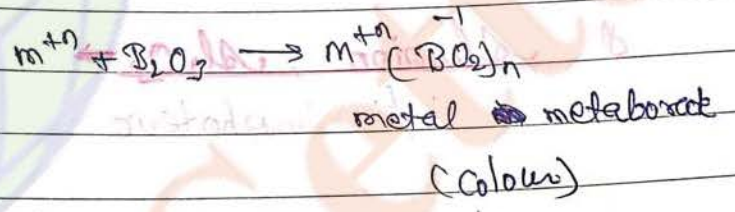 m⁺ⁿ + B₂O₃ ⟶ M⁺ⁿ(BO₂)ₙ⁻¹
metal metaborate
(Colour)